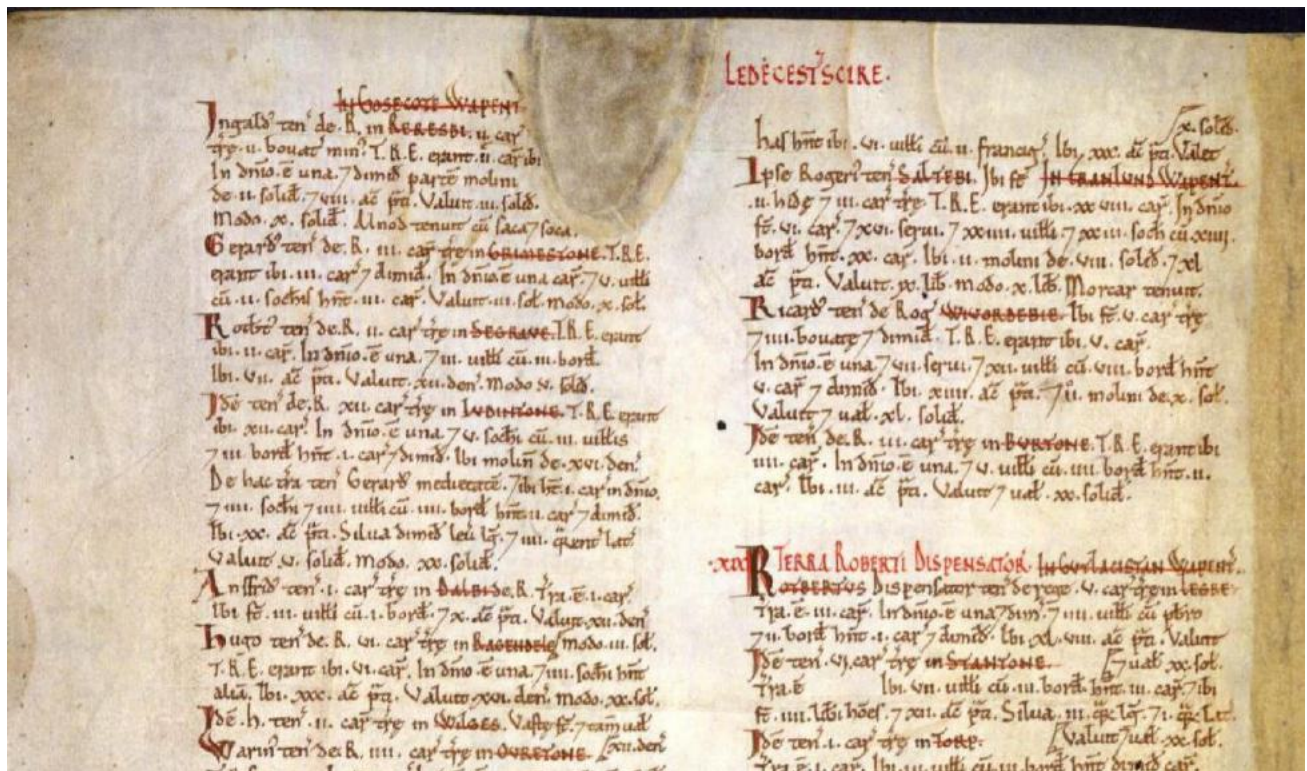 LEDECESTSCIRE.
IN GOSECOTE WAPENT
Ingald ten de. R. in RERESBI. ii. car
træ. ii. bouat min. T. R. E. erant. ii. car ibi
In dnio. ē una. 7 dimid partē molini
de. ii. solid. 7 viii. ac pti. Valuit. iii. solid.
Modo. x. solid. Alnod tenuit cū saca 7 soca.
Gerard ten de. R. iii. car træ in GRIMESTONE. T. R. E.
erant ibi. iii. car 7 dimid. In dnio. ē una car. 7 v. uilli
cū. ii. sochis hnt. iii. car. Valuit. iii. sol. modo. x. sol.
Rotbt ten de. R. ii. car træ in SEGRAVE. T. R. E. erant
ibi. ii. car. In dnio. ē una. 7 iii. uilli cū. iii. bord.
Ibi. vii. ac pti. Valuit. xii. den. Modo v. solid.
Idē ten de. R. xii. car træ in LUDINTONE. T. R. E. erant
ibi. xii. car. In dnio. ē una. 7 v. sochi cū. iii. uillis
7 iii. bord hnt. i. car 7 dimid. Ibi molin de. xvi. den.
De hac tra ten Gerard medietatē. 7 ibi ht. i. car in dnio.
7 iiii. sochi 7 iiii. uilli cū. iiii. bord hnt. ii. car 7 dimid.
Ibi. xx. ac pti. Silua dimid leu lg. 7 iiii. qrent lat
Valuit v. solid. modo. xx. solid.
Ansfrid ten. i. car træ in DALBI de. R. Tra. ē. i. car.
Ibi st. iii. uilli cū. i. bord. 7 x. ac pti. Valuit. xii. den
Hugo ten de. R. vi. car træ in RAGENDELE modo. iii. sol.
T. R. E. erant ibi. vi. car. In dnio. ē una. 7 iiii. sochi hnt
aliā. Ibi. xxx. ac pti. Valuit. xvi. den. modo. xx. sol.
Idē. h. ten. ii. car træ in WILGES. Vastę st. 7 tam ual
Warin ten de. R. iiii. car træ in OVRETONE. xii. den
x. solid.
has hnt ibi. vi. uilli cū. ii. francig. Ibi. xxx. ac pti. Valet
Ipse Roger ten SALTEBI. Ibi st IN FRANLUND WAPENT.
ii. hidę 7 iii. car træ. T. R. E. erant ibi. xx viii. car. In dnio
st. vi. car. 7 xvi. serui. 7 xxiiii. uilli 7 xxiii. soch cū xiii.
bord hnt. xx. car. Ibi. ii. molini de. viii. solid. 7 xl
ac pti. Valuit. xv. lib. modo. x. lib. Morcar tenuit.
Ricard ten de Rog WIVORDEBIE. Ibi st. v. car træ
7 iiii. bouatę 7 dimid. T. R. E. erant ibi. v. car.
In dnio. ē una. 7 vii. serui. 7 xii. uilli cū. viii. bord hnt
v. car 7 dimid. Ibi. xiiii. ac pti. 7 ii. molini de. x. sol.
Valuit 7 ual. xl. solid.
Idē ten de. R. iii. car træ in BURTONE. T. R. E. erant ibi
iiii. car. In dnio. ē una. 7 v. uilli cū. iiii. bord hnt. ii.
car. Ibi. iii. ac pti. Valuit 7 ual. xx. solid.
.xix. TERRA ROBERTI DISPENSATOR. IN GUTLACISTAN WAPENT.
ROTBERTUS Dispensator ten de rege. v. car træ in LESBE
Tra. ē. iii. car. In dnio. ē una 7 dim. 7 iiii. uilli cū pbro
7 ii. bord hnt. i. car 7 dimid. Ibi. xl. viii. ac pti. Valuit
Idē ten. vi. car træ in STANTONE. 7 ual xx. sol.
Tra. ē Ibi. vii. uilli cū. iii. bord. hnt. iii. car. 7 ibi
st. iiii. libi hōes. 7 xii. ac pti. Silua. iii. qr lg. 7 i. qr lat.
Idē ten. i. car træ in TORP. Valuit 7 ual. xx. sol.
Tra. ē. i. car. Ibi. iii. uilli cū. iii. bord hnt dimid car.